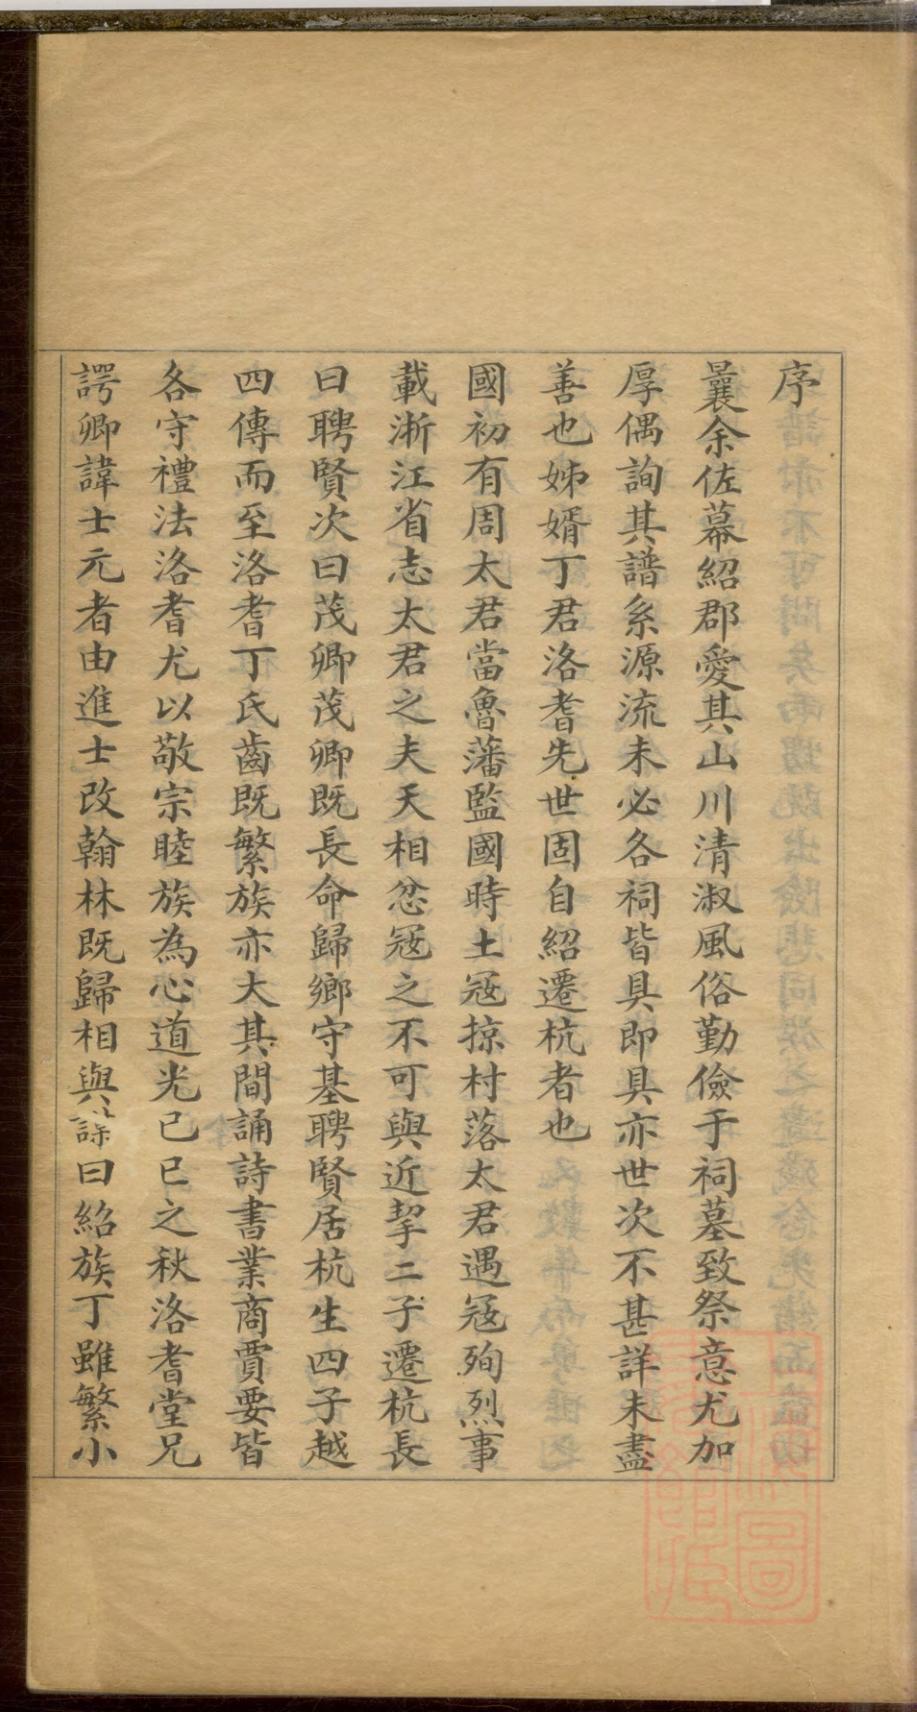 序
曩余佐幕紹郡愛其山川清淑風俗勤儉于祠墓致祭意尤加
厚偶詢其譜系源流未必各祠皆具即具亦世次不甚詳未盡
善也姊婿丁君洛耆先世固自紹遷杭者也
國初有周太君當魯藩監國時土冦掠村落太君遇冦殉烈事
載浙江省志太君之夫天相忿冦之不可與近挈二子遷杭長
曰聘賢次曰茂卿茂卿既長命歸鄉守基聘賢居杭生四子越
四傳而至洛耆丁氏齒既繁族亦大其間誦詩書業商賈要皆
各守禮法洛耆尤以敬宗睦族為心道光己巳之秋洛耆堂兄
諤卿諱士元者由進士改翰林既歸相與謀曰紹族丁雖繁小